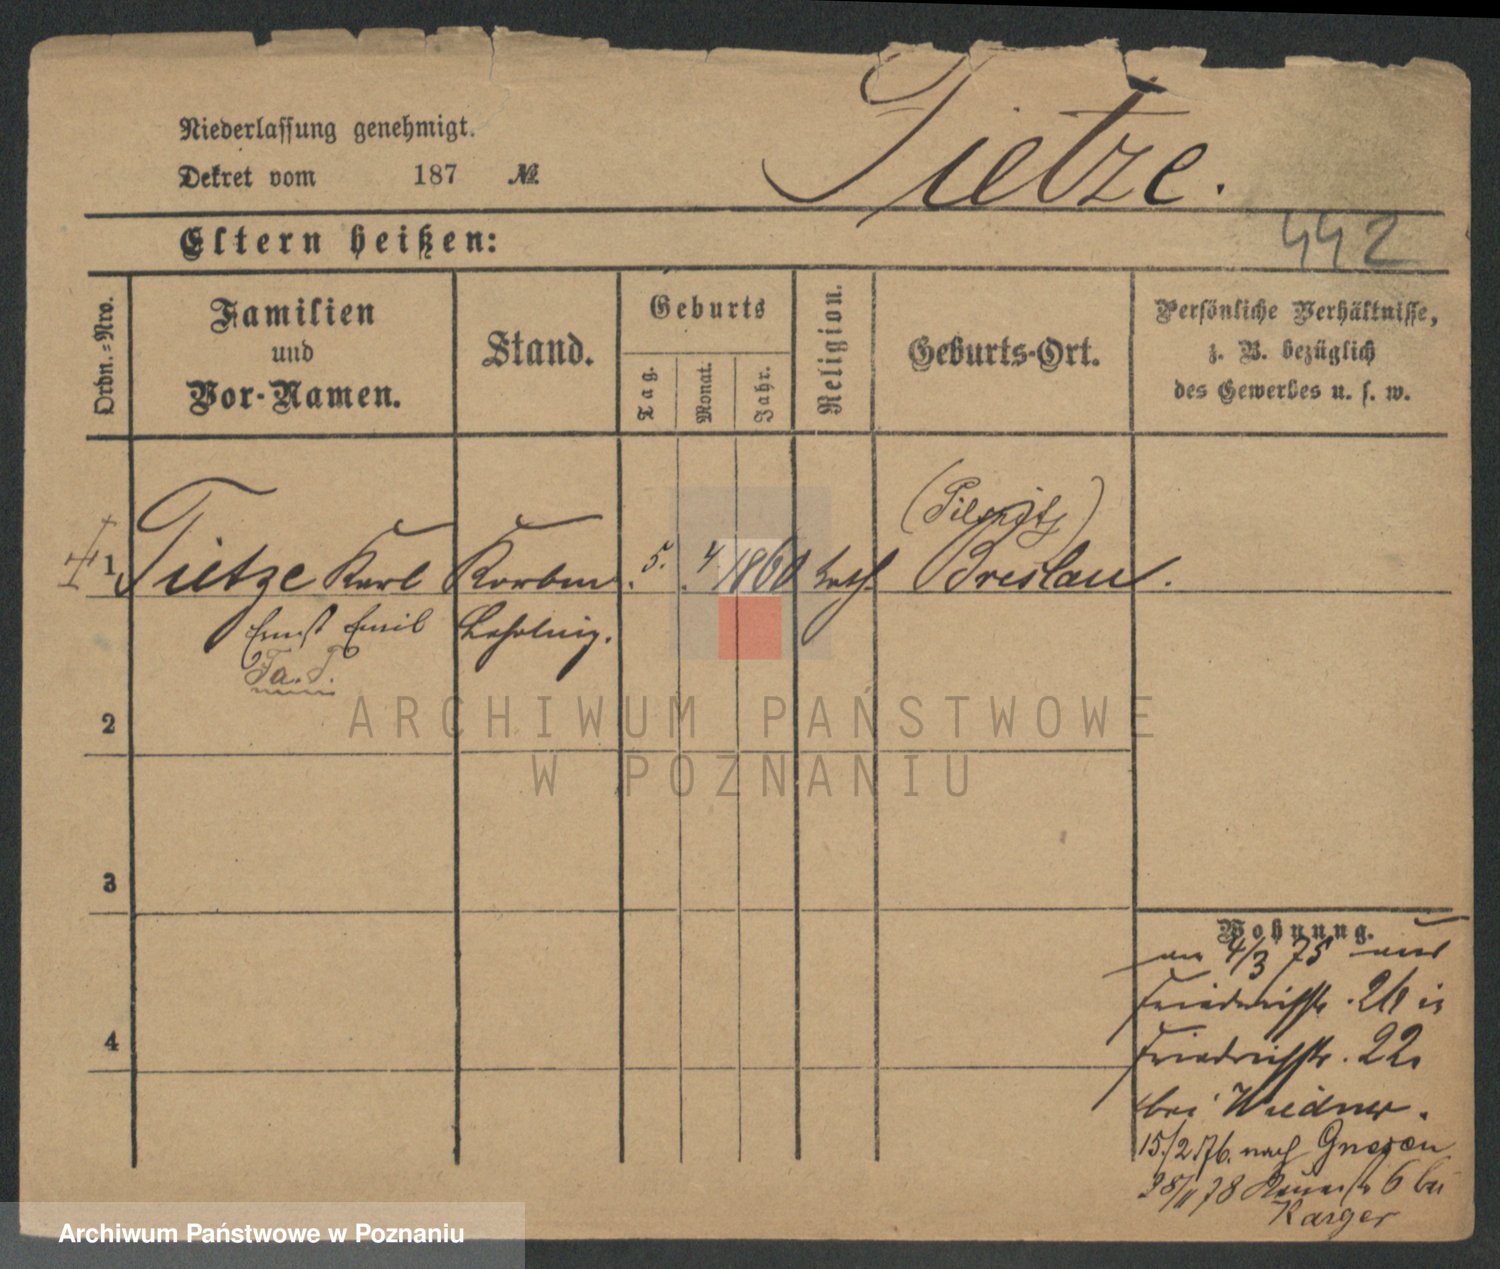 Tietze.
Niederlassung genehmigt.
Dekret vom 187 №
Eltern heißen:
442
Ordn.-Nro.
Familien
und
Vor-Namen.
Stand.
Geburts
Tag.
Monat.
Jahr.
Religion.
Geburts-Ort.
Persönliche Verhältnisse,
z. B. bezüglich
des Gewerbes u. s. w.
(Pilsnitz)
1 Tietze Karl Korbm. 5. 4 1860 kath. Breslau.
Ernst Emil Lehrling.
Fa. T.
2
3
4
Wohnung.
am 4/3 75 aus
Friedrichstr. in
Friedrichstr. 22
bei Wiedner.
15/2 76. nach Gnesen
78 6 bei
Karger
ARCHIWUM PAŃSTWOWE
W POZNANIU
Archiwum Państwowe w Poznaniu